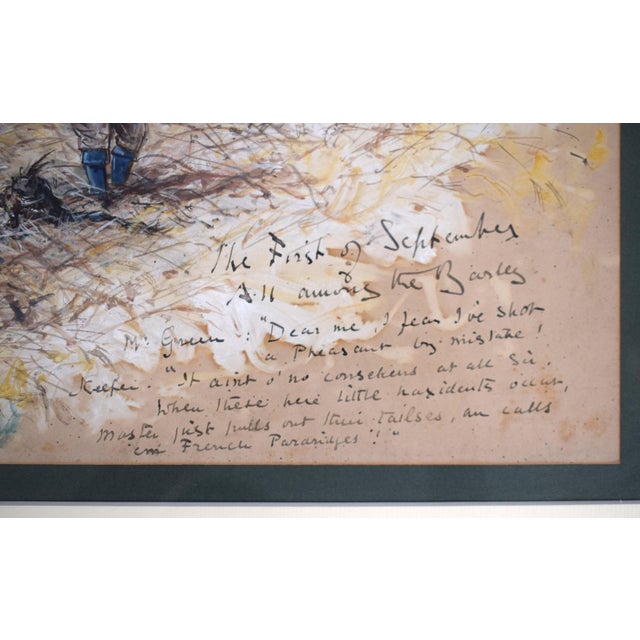 The First of September
All among the Barley
Mr Green: "Dear me, I fear I've shot
a Pheasant by mistake!
Keeper. "It aint o' no consekens at all Sir.
When these here little haxidents occur,
Master just pulls out their tailses, an calls
'em French Pararidges!"